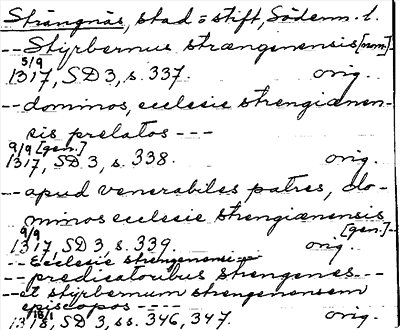 Strängnäs, stad o stift, Söderm. l.
-- Styrbernus strængenensis [nom.]
5/9
1317, SD 3, s. 337. orig.
-- dominos, ecclesie strengianen-
sis prelatos ---
9/9 [gen.]
1317, SD 3, s. 338. orig.
-- apud venerabiles patres, do-
minos ecclesie strengianensis
9/9 [gen.] --
1317, SD 3, s. 339. orig.
-- Ecclesie strengenensi --
-- predicatoribus strengenes ---
-- et styrbernum strengenensem
episcopos ----
1318, SD 3, ss. 346, 347. orig.